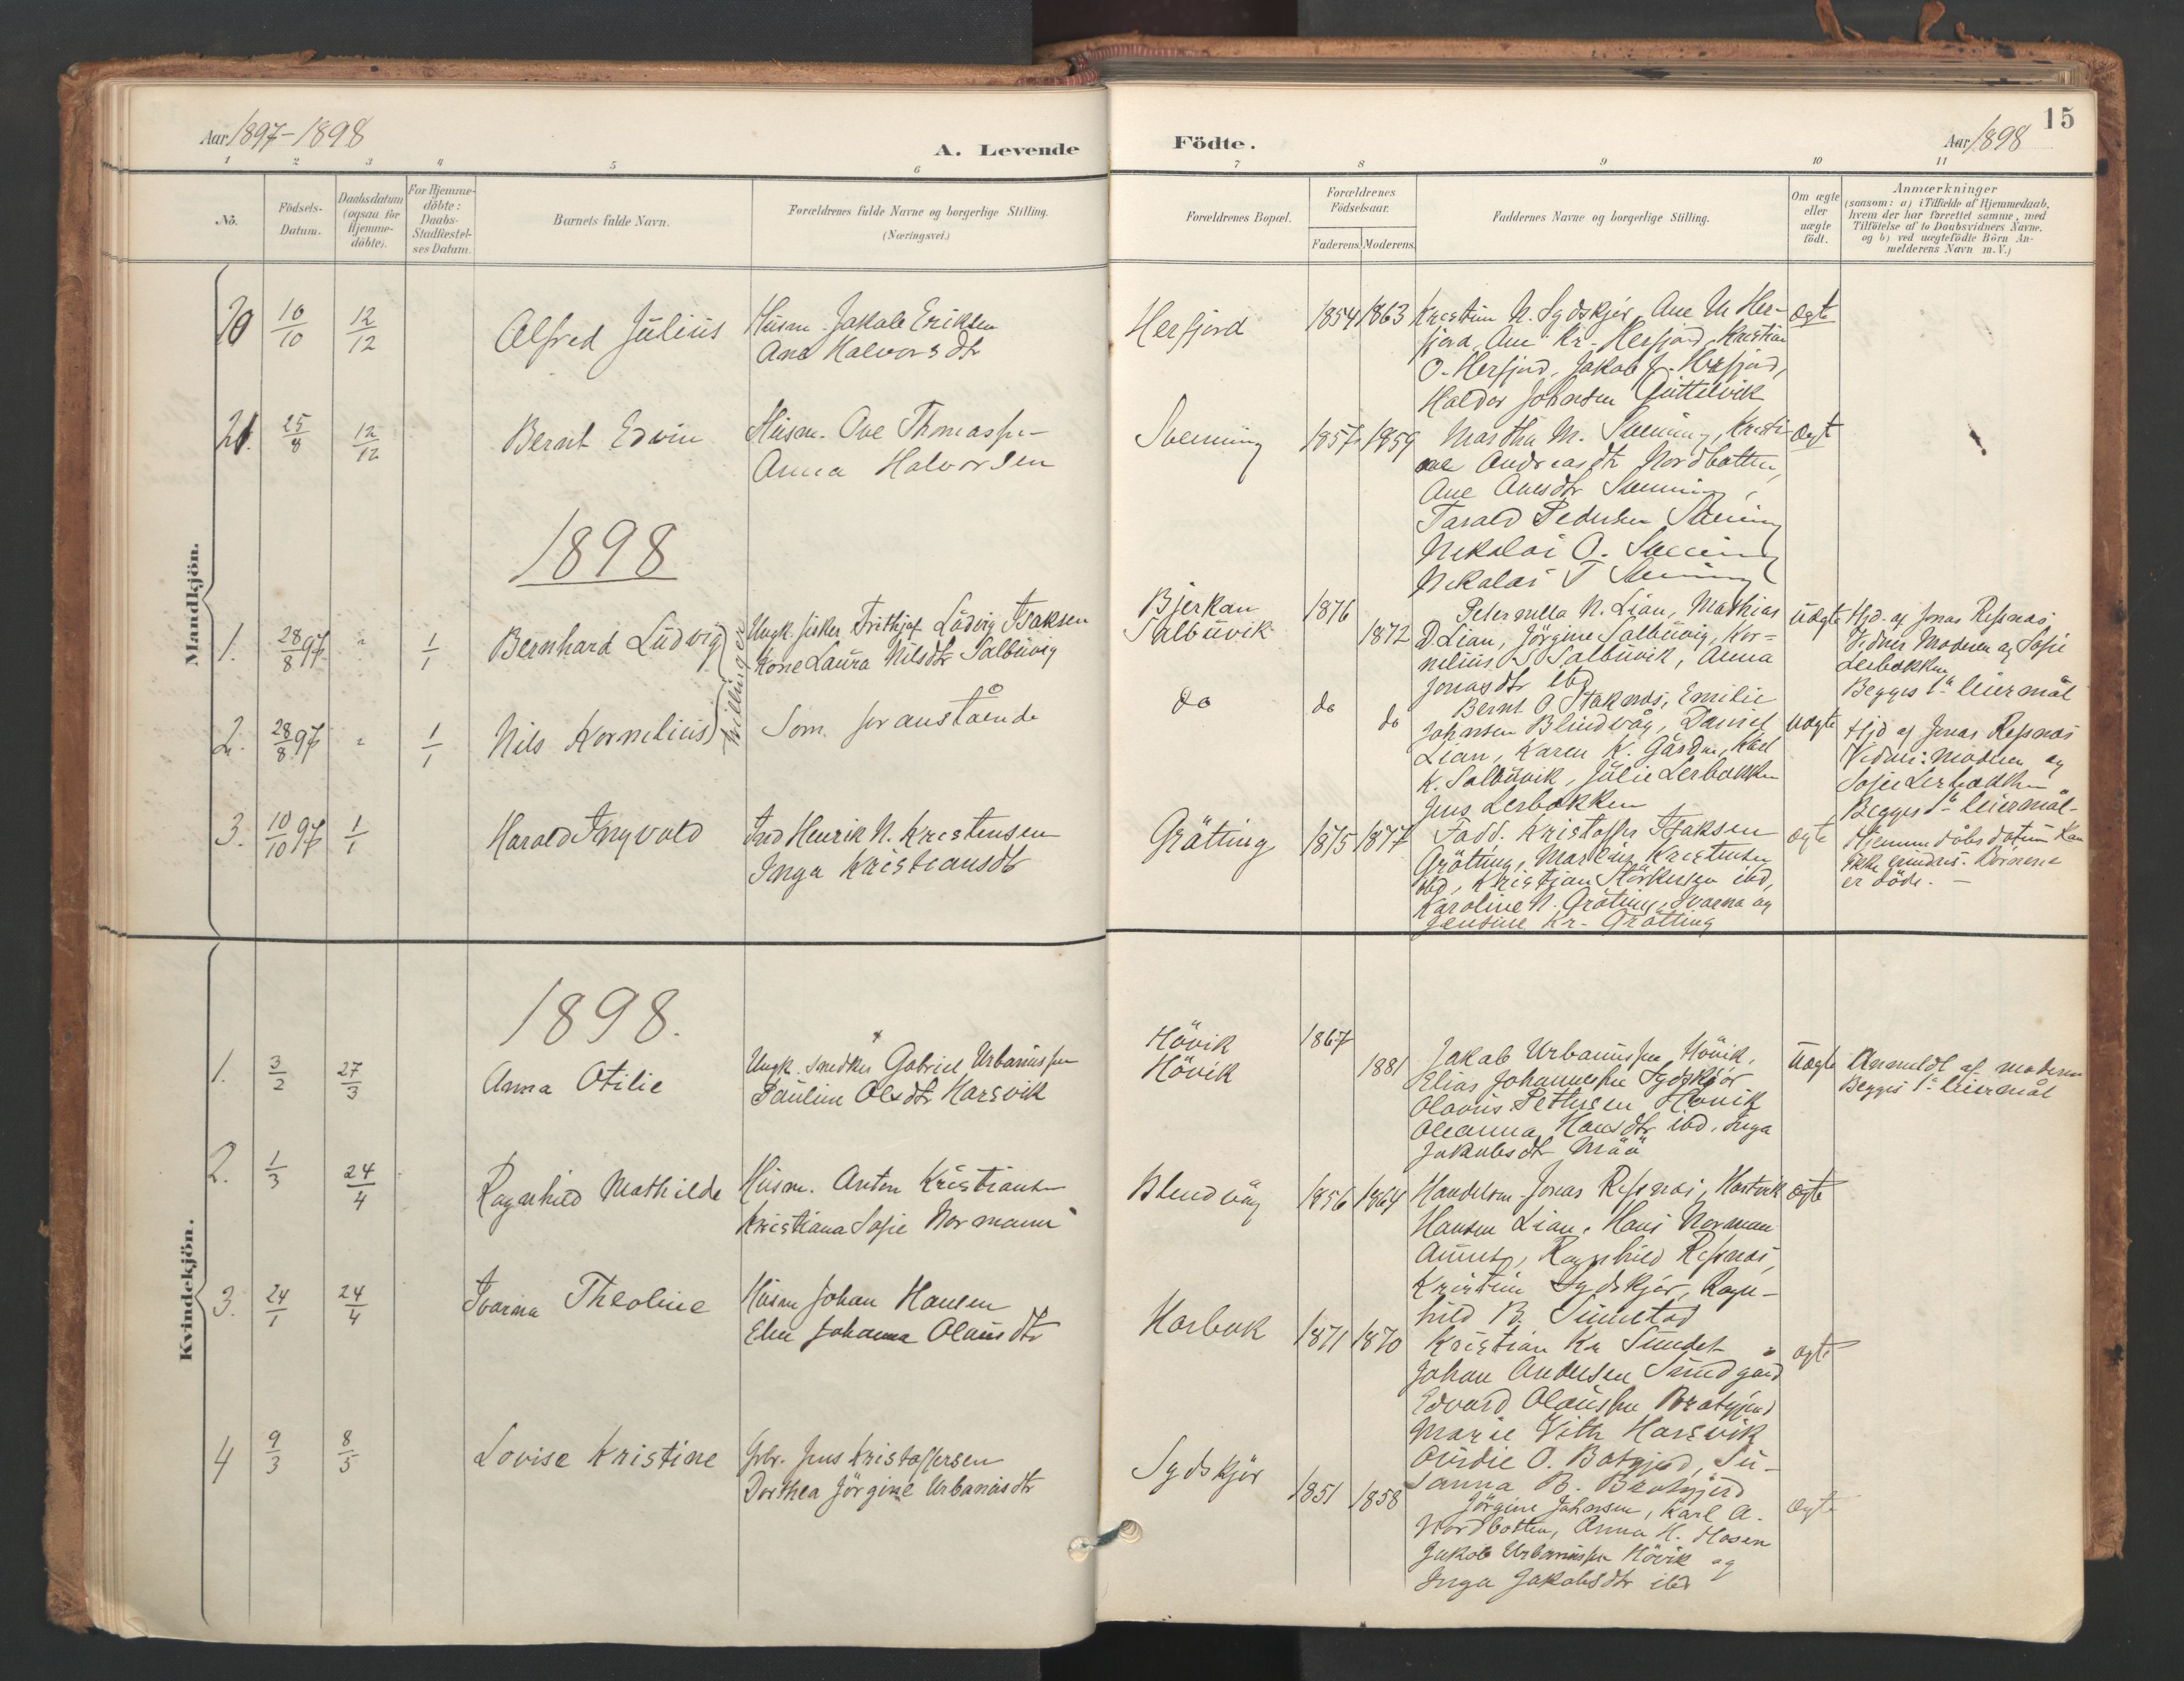 Aar 1897-1898
A. Levende
Födte.
Aar 1898
15
1 2 3 4 5 6 7 8 9 10 11
No.
Födsels-Datum.
Daabsdatum (ogsaa for Hjemme-döbte).
For Hjemme-döbte: Daabs-Stadfæstel-ses Datum.
Barnets fulde Navn.
Forældrenes fulde Navne og borgerlige Stilling.
(Næringsvei.)
Forældrenes Bopæl.
Forældrenes Födselsaar.
Faderens. Moderens.
Faddernes Navne og borgerlige Stilling.
Om ægte eller uægte födt.
Anmærkninger
(saasom: a) i Tilfælde af Hjemmedaab,
hvem der har forrettet samme, med
Tilföielse af to Daabsvidners Navne.
og b) ved uægtefödte Börn An-
melderens Navn m. V.)
Mandkjön.
20 10/10 12/12 Alfred Julius
Husm. Jakob Eriksen
Ane Halvorsdtr
Herfjord 1854 1863
Kristin N. Sydskjör, Ane M. Her-
fjord, Ane Kr. Herfjord, Kristian
O. Herfjord, Jakob J. Herfjord,
Haldor Johnsen
Ægte
21. 25/8 12/12 Bernt Edvin
Husm. Ove Thomassen
Anna Halvorsen
Svenning 1857 1859
Martha M. Svenning, Kristi-
ane Andreasdtr Nordbotten,
Ane Anesdtr Svenning,
Tarald Pedersen Svenning
Nikolai O. Svenning
Nikolai T Svenning
Ægt
1898
1. 28/8 97 " 1/1 Bernhard Ludvig
Ungk. fisker Frithjof Ludvig Isaksen
Kone Laura Nilsdtr Salbuvig
Tvillinger
Bjerkan
Salbuvik
1876
1872
Peternella N. Lian, Mathias
D. Lian, Jörgine Salbuvig, Kor-
nelius S. Salbuvik, Anna
Jonasdtr ibd
Uægte
Hjd. af Jonas Refsnæs,
Vidner Moderen og Sofie
Lerbakken
Begges 1ste leiermål
2. 28/8 97 " 1/1 Nils Kornelius
Som foranstående
do do do
Bernt O. Stoknæs, Emilie
Johnsen Blindvåg, Daniel
Lian, Karen K. Gården, Karl
K. Salbuvik, Julie Lerbakken
Jens Lerbakken
Uægte
Hjd af Jonas Refsnæs
Vidner: Moderen og
Sofie Lerbakken
Begges 1ste leiermål.
3. 10/10 97 1/1 Harald Ingvald
Ind Henrik N. Kristensen
Inga Kristiansdtr
Grötting 1875 1877
Fadd. Kristoffer Isaksen
Grötting, Martin Kristensen
ibd, Kristian Störkersen ibd,
Karoline N. Gröting, Ivarna og
Jensine Kr. Grötting
Ægte
Hjemmedåbsdatum kan
ikke erindres. Börnene
er döde. —
Kvindekjön.
1898.
1. 3/2 27/3 Anna Otilie
Ungk. snedker Gabriel Urbanussen
Pauline Olsdtr Harsvik
Hövik
Hövik
1867
1881
Jakob Urbanussen Hövik,
Elias Johannessen Sydskjör
Olavus Pettersen Hövik
Oleanna Hansdtr ibd, Inga
Jakobsdtr
Uægte
Anmeldt af moderen
Begges 1ste leiermål
2. 1/3 24/4 Ragnhild Mathilde
Husm. Anton Kristiansen
Kristiana Sofie Normann
Blindvåg 1856 1864
Handelsm. Jonas Refsnæs, Hartvik
Hansen Lian, Hans Norman
Ragnhild Refsnæs,
Kristin Sydskjör, Ragn-
hild B. Sumstad
Ægte
3. 24/1 24/4 Ivarna Theoline
Husm Johan Hansen
Elen Johanna Olausdtr
Harbak 1871 1870
Kristian Kr Sundet
Johan Andersen Sundgård
Edvard Olaussen Bratgjerd
Marie Vith Harsvik
Gurdie O. Batgjerd, Su-
sanna B. Bratgjerd
ægte
4 9/3 8/5 Lovise Kristine
Gbr. Jens Kristoffersen
Dorthea Jörgine Urbanusdtr
Sydskjör 1851 1858
Jörgine Johnsen, Karl A.
Nordbotten, Anna H. Mosen
Jakob Urbanussen Hövik og
Inga Jakobsdtr ibd
Ægte